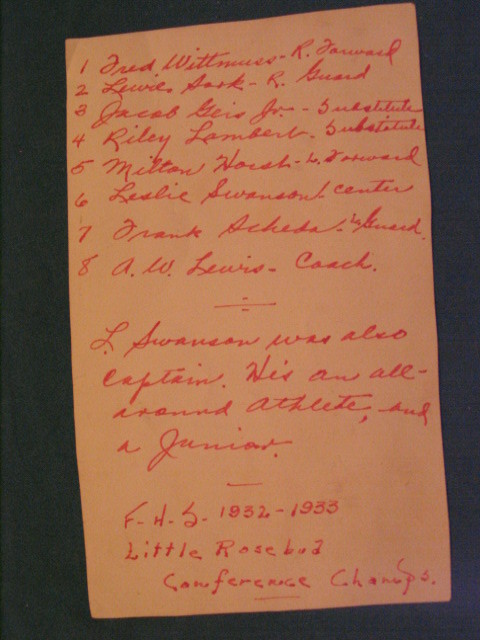 1 Fred Wittmuss - R. Forward
2 Lewie Sark - R. Guard
3 Jacob Geis Jr. - Substitute
4 Riley Lambert - Substitute
5 Milton Horsh - L. Forward
6 Leslie Swanson - center
7 Frank Scheba - L. Guard.
8 A. W. Lewis - Coach.
L. Swanson was also
Captain. His an all-
around athlete, and
a Junior.
F. H. S. 1932 - 1933
Little Rosebud
Conference Champs.